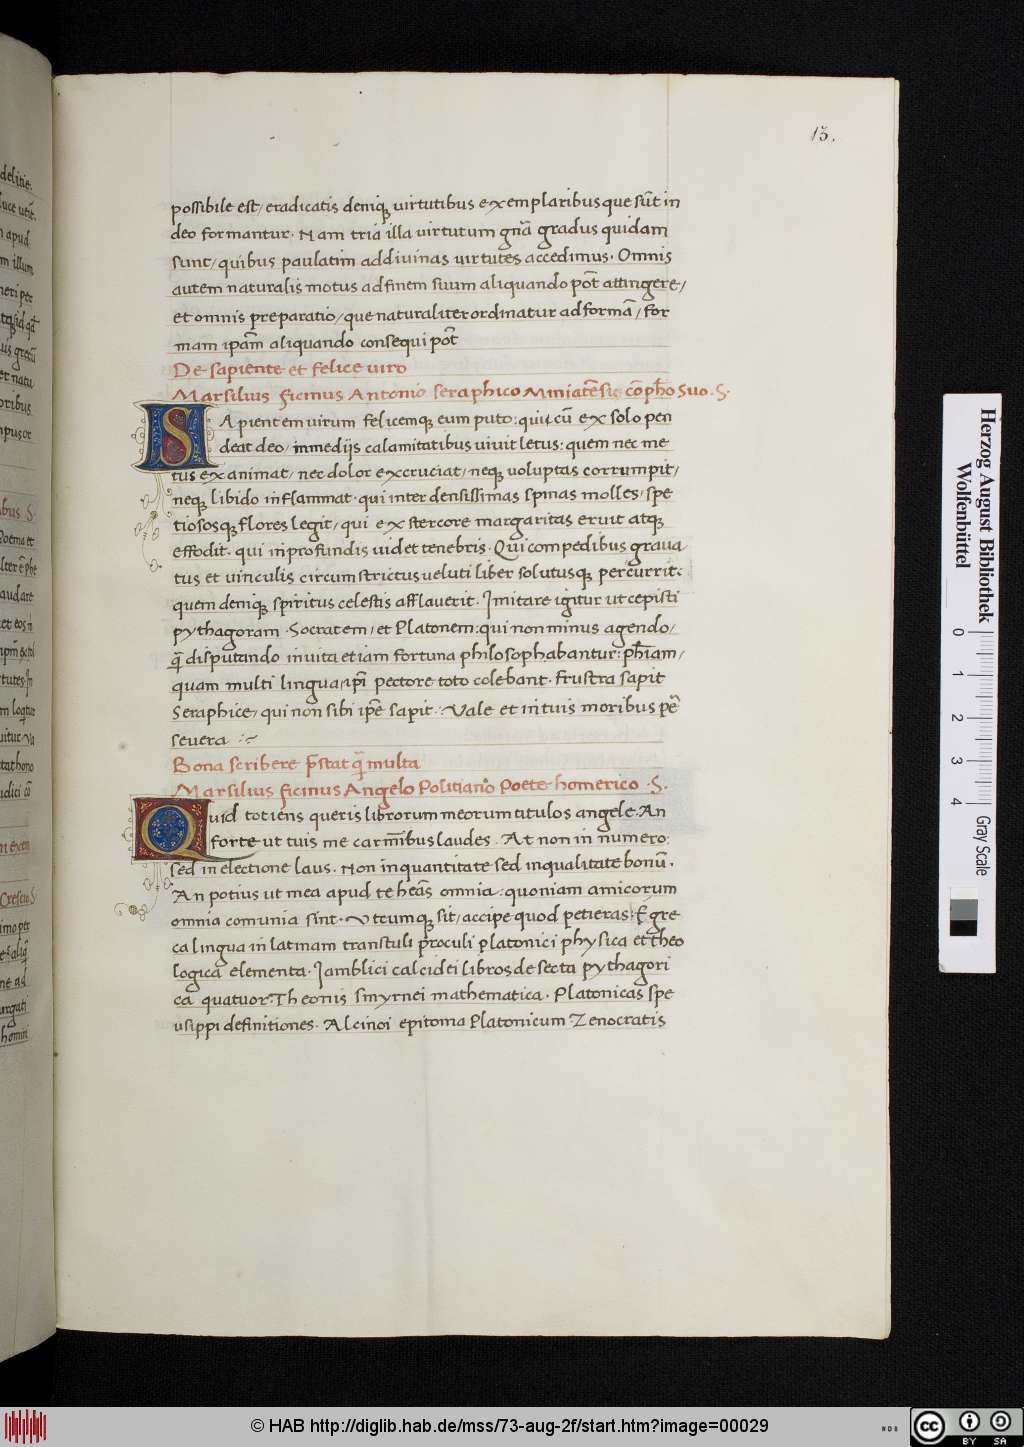 15.
possibile est, eradicatis deniq; uirtutibus exemplaribus que sũt in
deo formantur. Nam tria illa uirtutum gñã gradus quidam
sunt, quibus paulatim ad diuinas uirtutes accedimus. Omnis
autem naturalis motus ad finem suum aliquando põt attingere,
et omnis preparatio, que naturaliter ordinatur ad formã, for
mam ipam̃ aliquando consequi põt
De sapiente et felice uiro
Marsilius ficinus Antonio seraphico Miniatẽsi cõph̃o suo. S.
SApientem uirum felicemque eum puto: qui cũ ex solo pen
deat deo, in medijs calamitatibus uiuit letus: quem nec me
tus exanimat, nec dolor excruciat, neq; uoluptas corrumpit,
neq; libido inflammat. qui inter densissimas spinas molles, spe
tiososq; flores legit, qui ex stercore margaritas eruit atq;
effodit. qui in profundis uidet tenebris. Qui compedibus graua
tus et uinculis circumstrictus ueluti liber solutusq; percurrit:
quem deniq; spiritus celestis afflauerit. Imitare igitur ut cepisti
pythagoram. Socratem, et Platonem: qui non minus agendo,
q̃ disputando inuita etiam fortuna philosophabantur: ph̃iam,
quam multi lingua, ipi pectore toto colebant. Frustra sapit
Seraphice, qui non sibi ipẽ sapit. Vale et in tuis moribus pẽr
seuera :~
Bona scribere p̃stat q̃ multa
Marsilius ficinus Angelo Politiano Poete homerico. S.
Quid totiens queris librorum meorum titulos angele. An
forte ut tuis me carm̃ibus laudes. At non in numero:
sed in electione laus. Non in quantitate sed in qualitate bonũ.
An potius ut mea apud te heãs omnia: quoniam amicorum
omnia comunia sint. Vtcumq; sit, accipe quod petieras. E gre
ca lingua in latinam transtuli proculi platonici physica et theo
logica elementa. Iamblici calcidei libros de secta pythagori
ca quatuor. Theonis smyrnei mathematica. Platonicas spe
usippi definitiones. Alcinoi epitoma Platonicum. Zenocratis
Herzog August Bibliothek
Wolfenbüttel
0 1 2 3 4
Gray Scale
© HAB http://diglib.hab.de/mss/73-aug-2f/start.htm?image=00029
WDB
cc BY SA